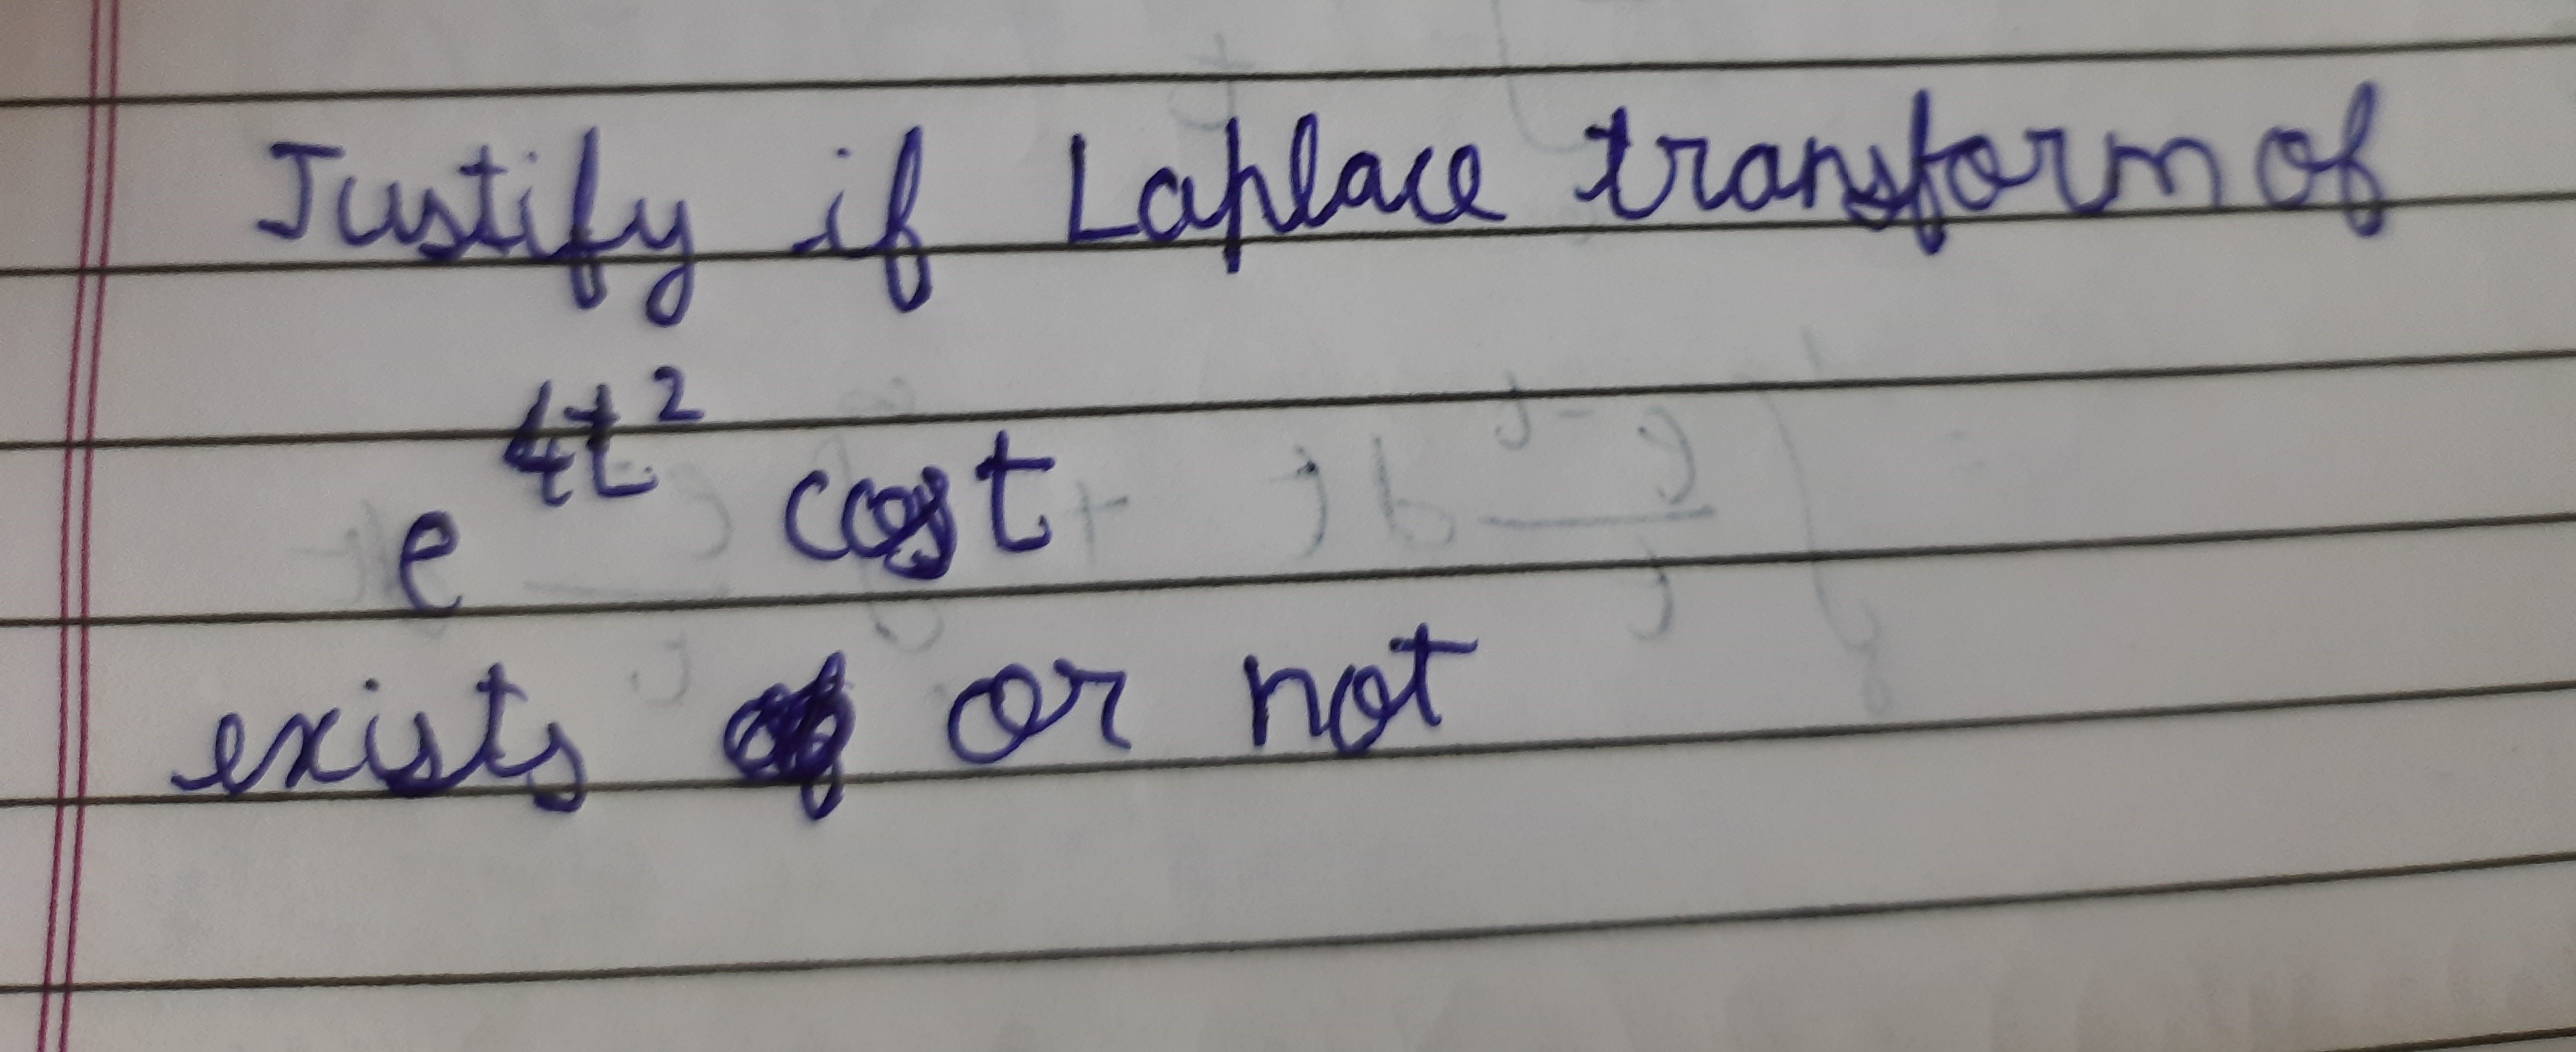 Justify if Laplace transform of
e^{4t^2} cos t
exists or not